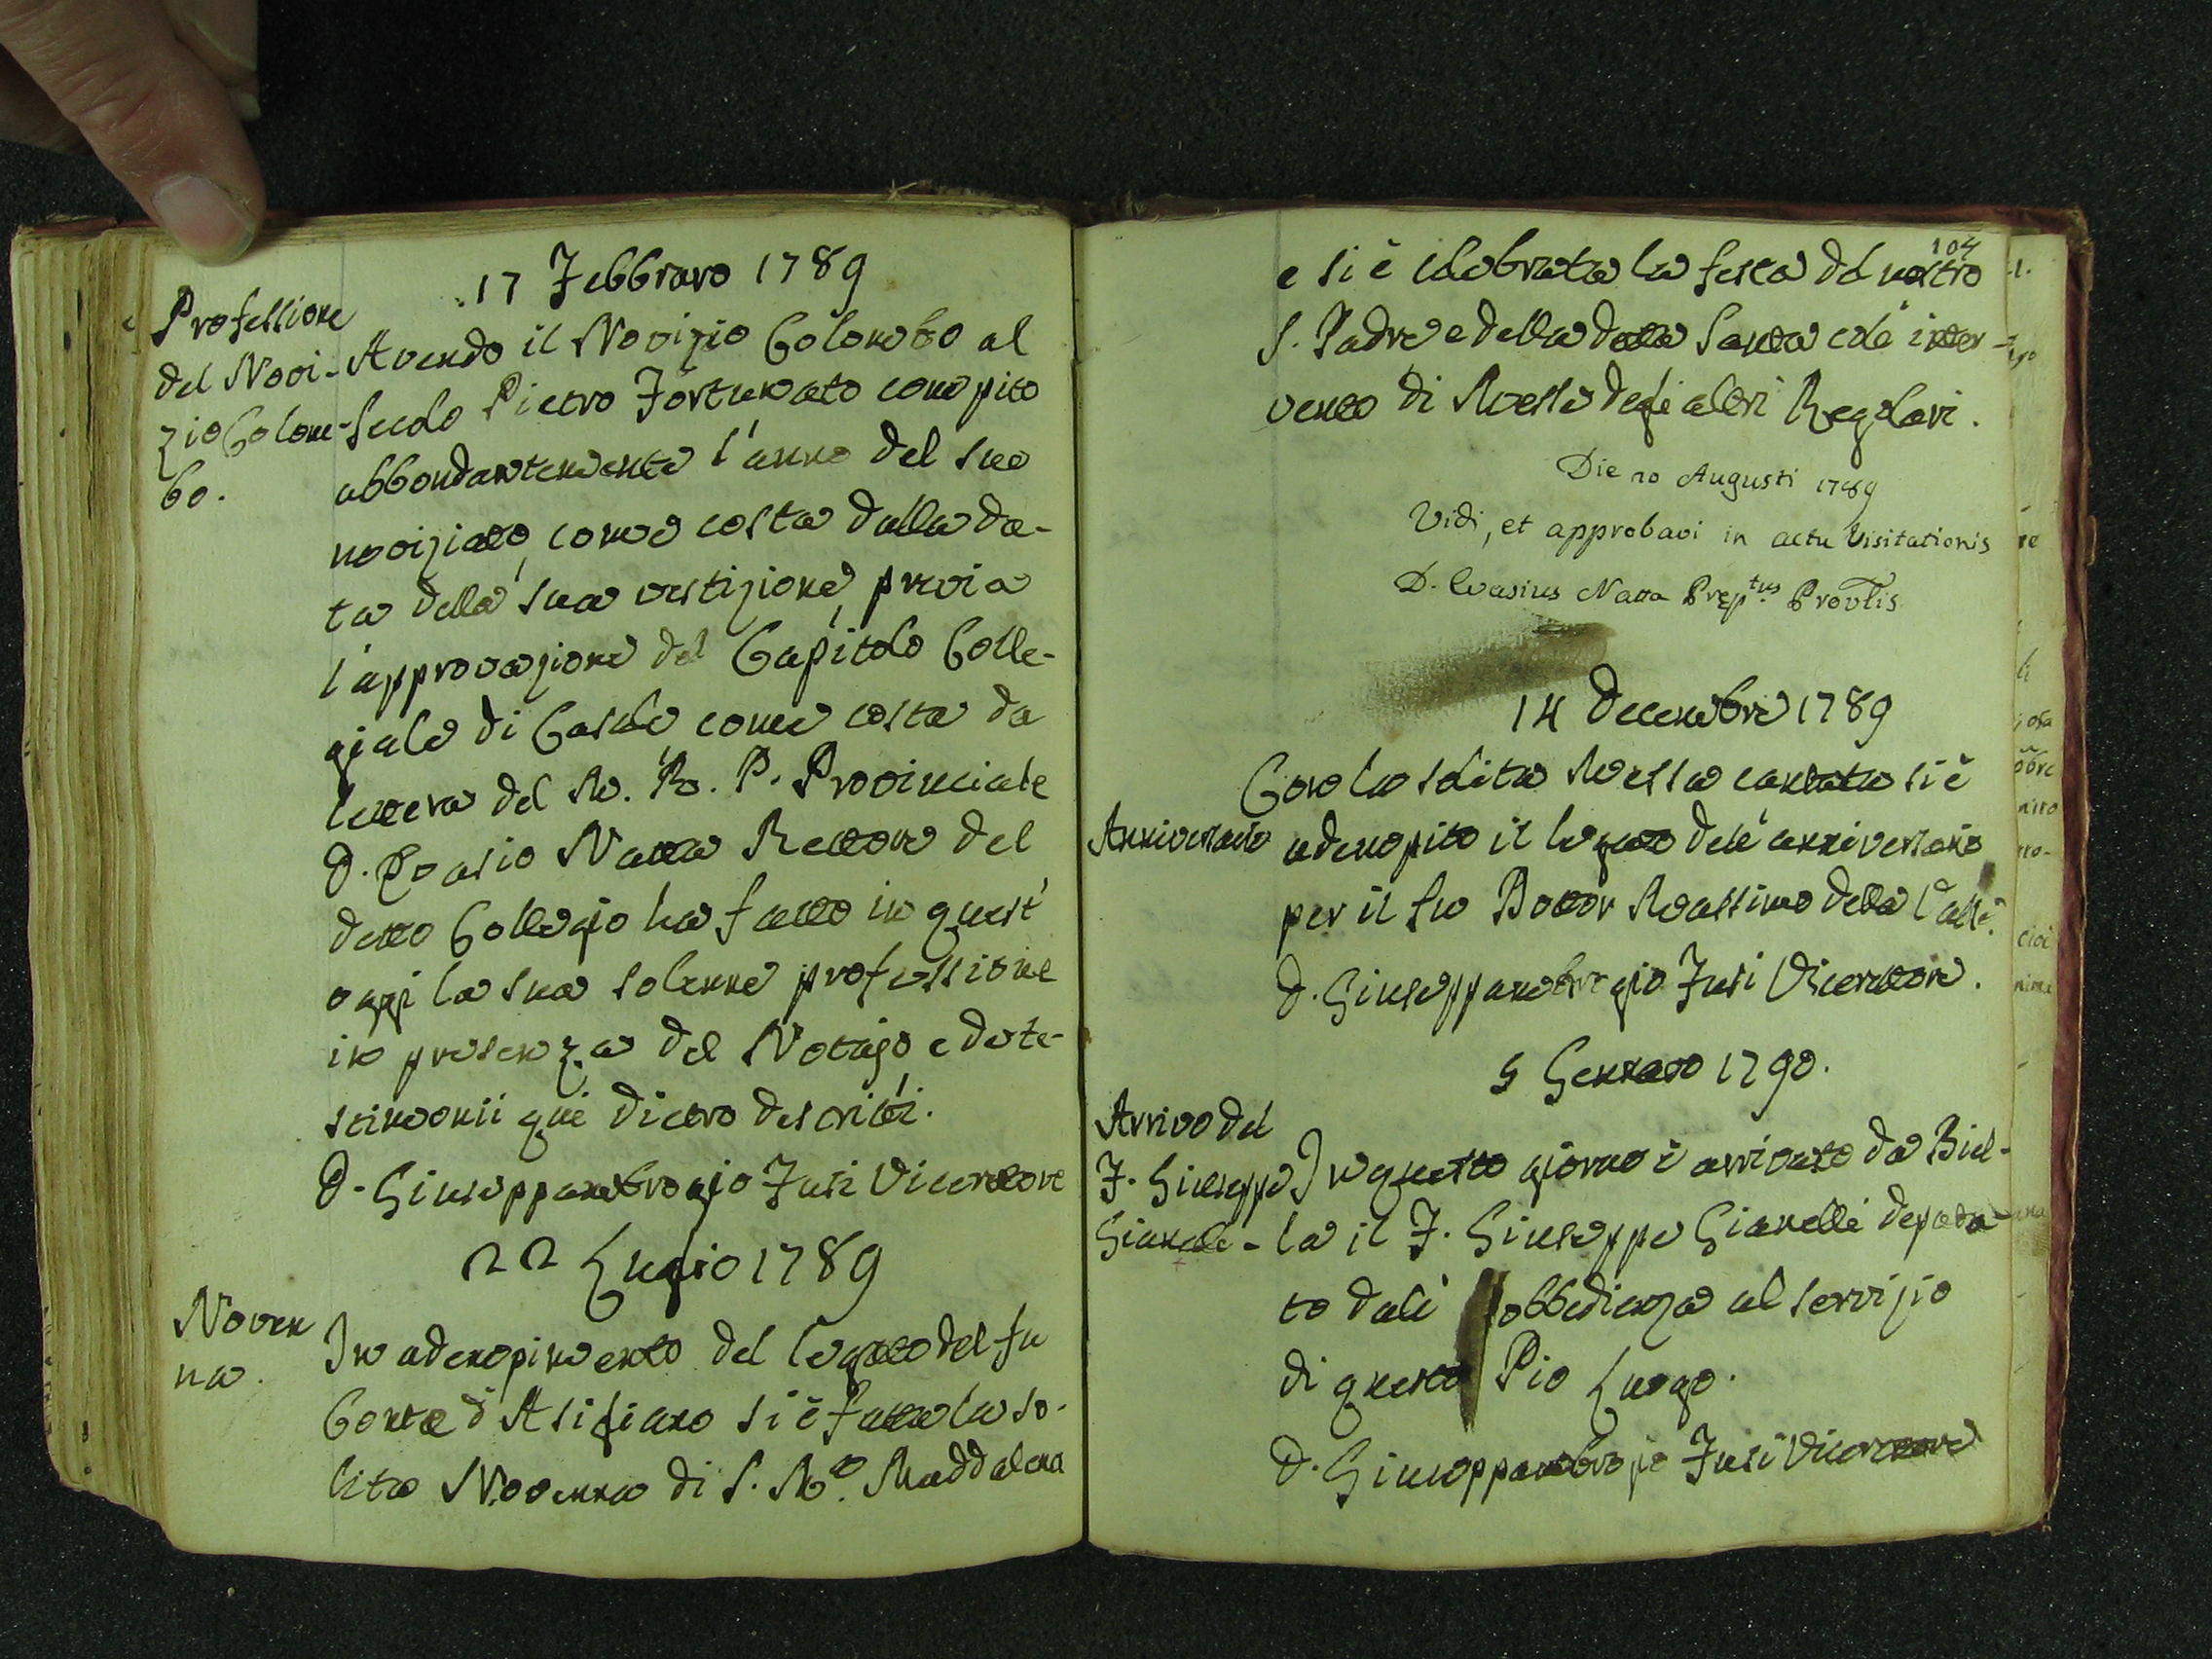 17 Febbraro 1789
Professione
del Novi-
zio Colom-
bo.
Avendo il Novizio Colombo al
secolo Pietro Fortunato compito
abbondantemente l'anno del suo
noviziato, come costa dalla da-
ta della sua vestizione, previa
l'approvazione del Capitolo Colle-
giale di Casale come costa da
lettera del M. R. P. Provinciale
D. Evasio Natta Rettore del
detto Collegio ha fatto in quest'
oggi la sua solenne professione
in presenza del Notajo e de te-
stimonii qui dietro descritti.
D. Giuseppambrogio Fusi Vicerettore
22 Luglio 1789
Noven
na.
In adempimento del legato del fu
Conte d'Asigliano si è fatta la so-
lita Novenna di S. Ma. Maddalena
104
e si è celebrata la festa del nostro
S. Padre e della detta Santa coll' inter-
vento di Messe degli altri Regolari.
Die 20 Augusti 1789
Vidi, et approbavi in actu Visitationis
D. Evasius Natta Pręptus Provlis
14 Decembre 1789
Anniversario
Con la solita Messa cantata si è
adempito il legato dell' anniversario
per il fu Dottor Massimo della Valle.
D. Giuseppambrogio Fusi Vicerettore.
5 Gennaro 1790.
Arrivo del
F. Giuseppe
Gianelli
In questo giorno è arrivato da Biel-
la il F. Giuseppe Gianelli deputa-
to dall' obbedienza al servizio
di questo Pio Luogo.
D. Giuseppambrogio Fusi Vicerettore